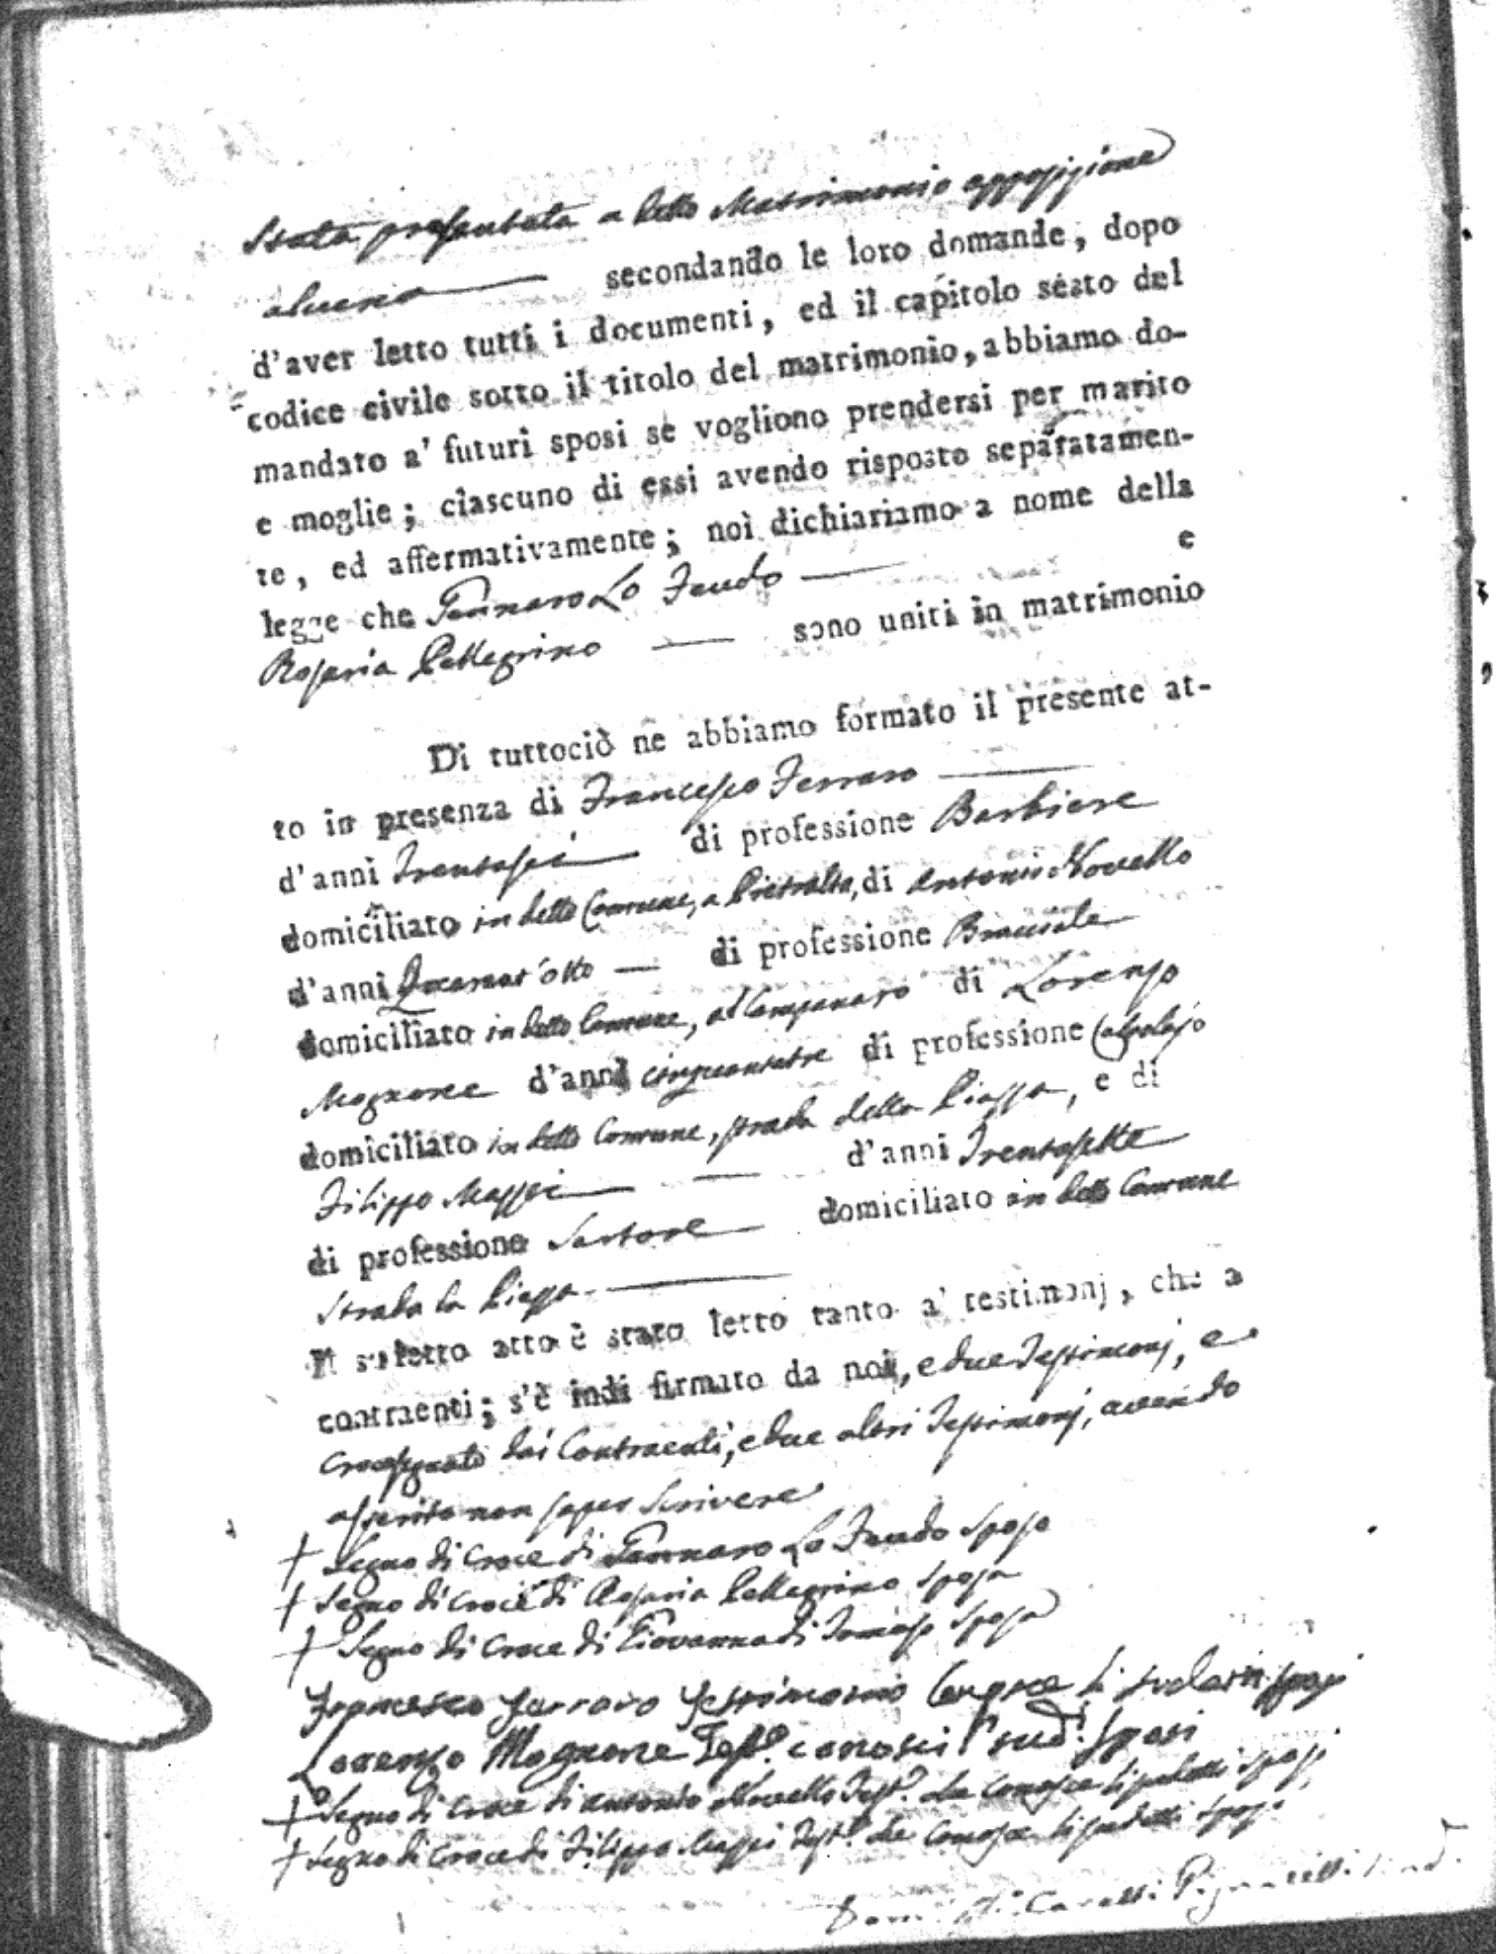 Stata presentata a detto Matrimonio opposizione
alcuna secondando le loro domande, dopo
d'aver letto tutti i documenti, ed il capitolo sesto del
codice civile sotto il titolo del matrimonio, abbiamo do-
mandato a' futuri sposi se vogliono prendersi per marito
e moglie; ciascuno di essi avendo risposto separatamen-
te, ed affermativamente; noi dichiariamo a nome della
legge che Gennaro Lo Feudo e
Rosaria Pellegrino sono uniti in matrimonio
Di tuttociò ne abbiamo formato il presente at-
to in presenza di Francesco Ferraro
d'anni Trentasei di professione Barbiere
domiciliato in detto Comune, a Pietralta, di Antonio Novello
d'anni Quarant'otto di professione Bracciale
domiciliato in detto Comune, al Campanaro di Lorenzo
Magnone d'anni cinquantatre di professione Calzolajo
domiciliato in detto Comune, strada della Piazza, e di
Filippo Mazzei d'anni Trentasette
di professione Sartore domiciliato in detto Comune
Strada la Piazza
Il sudetto atto è stato letto tanto a' testimonj, che a
contraenti; s'è indi firmato da noi, e due Testimonj, e
crocesegnato dai Contraenti, e due altri Testimonj, avendo
asserito non saper scrivere
+ Segno di croce di Gennaro Lo Feudo sposo
+ Segno di croce di Rosaria Pellegrino sposa
+ Segno di croce di Giovanna di Tomaso sposa
Francesco Ferraro Testimonio Conosce li sudetti sposi
Lorenzo Magnone Test.º conosci l sud.i Sposi
+ Segno di croce di Antonio Novello Test.º che conosce li sudetti sposi
+ Segno di croce di Filippo Mazzei Test.º che conosce li sudetti sposi
Cavalli Pignatelli